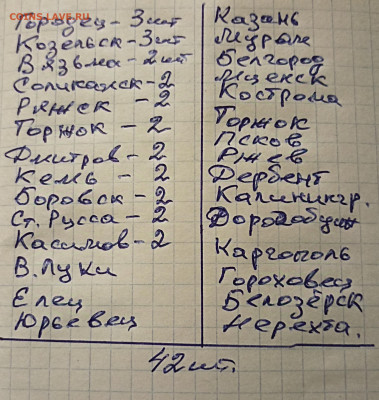 COINS.LAVE.RU
Городец - 3шт
Козельск - 3шт
Вязьма - 2шт
Соликамск - 2
Ряжск - 2
Торжок - 2
Дмитров - 2
Кемь - 2
Боровск - 2
Ст. Русса - 2
Касимов - 2
В. Луки
Елец
Юрьевец
Казань
Муром
Белгород
Мценск
Кострома
Торжок
Псков
Ржев
Дербент
Калинингр.
Дорогобуж
Каргополь
Гороховец
Белозёрск
Нерехта.
42шт.